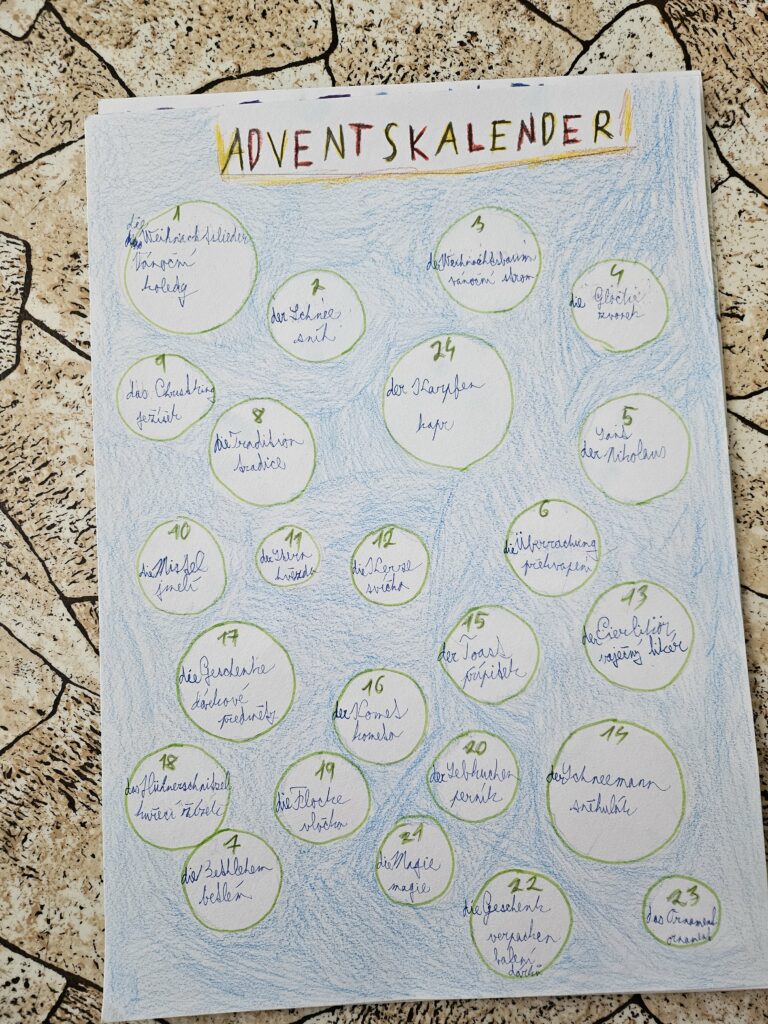 ADVENTSKALENDER
1
die
Weihnachtslieder
Vánoční
koledy
2
der Schnee
sníh
3
der Weihnachtsbaum
vánoční strom
4
die
zvonek
24
der Karpfen
kapr
9
das Christking
ježíšek
8
die Tradition
tradice
5
der Nikolaus
6
die Überrachung
překvapení
10
die Mistel
jmelí
11
der Stern
hvězda
12
die Kerze
svíčka
13
der Eierlikör
vaječný likér
15
der Toast
přípitek
17
die Geschenke
dárkové
předměty
16
der Komet
kometa
14
der Schneemann
sněhulák
18
das Hühnerschnitzel
kuřecí řízek
19
die Flocke
vločka
20
der Lebkuchen
perník
7
die Bethlehem
betlém
21
die Magie
magie
22
die Geschenk
verpacken
balení
dárků
23
das Ornament
ornament